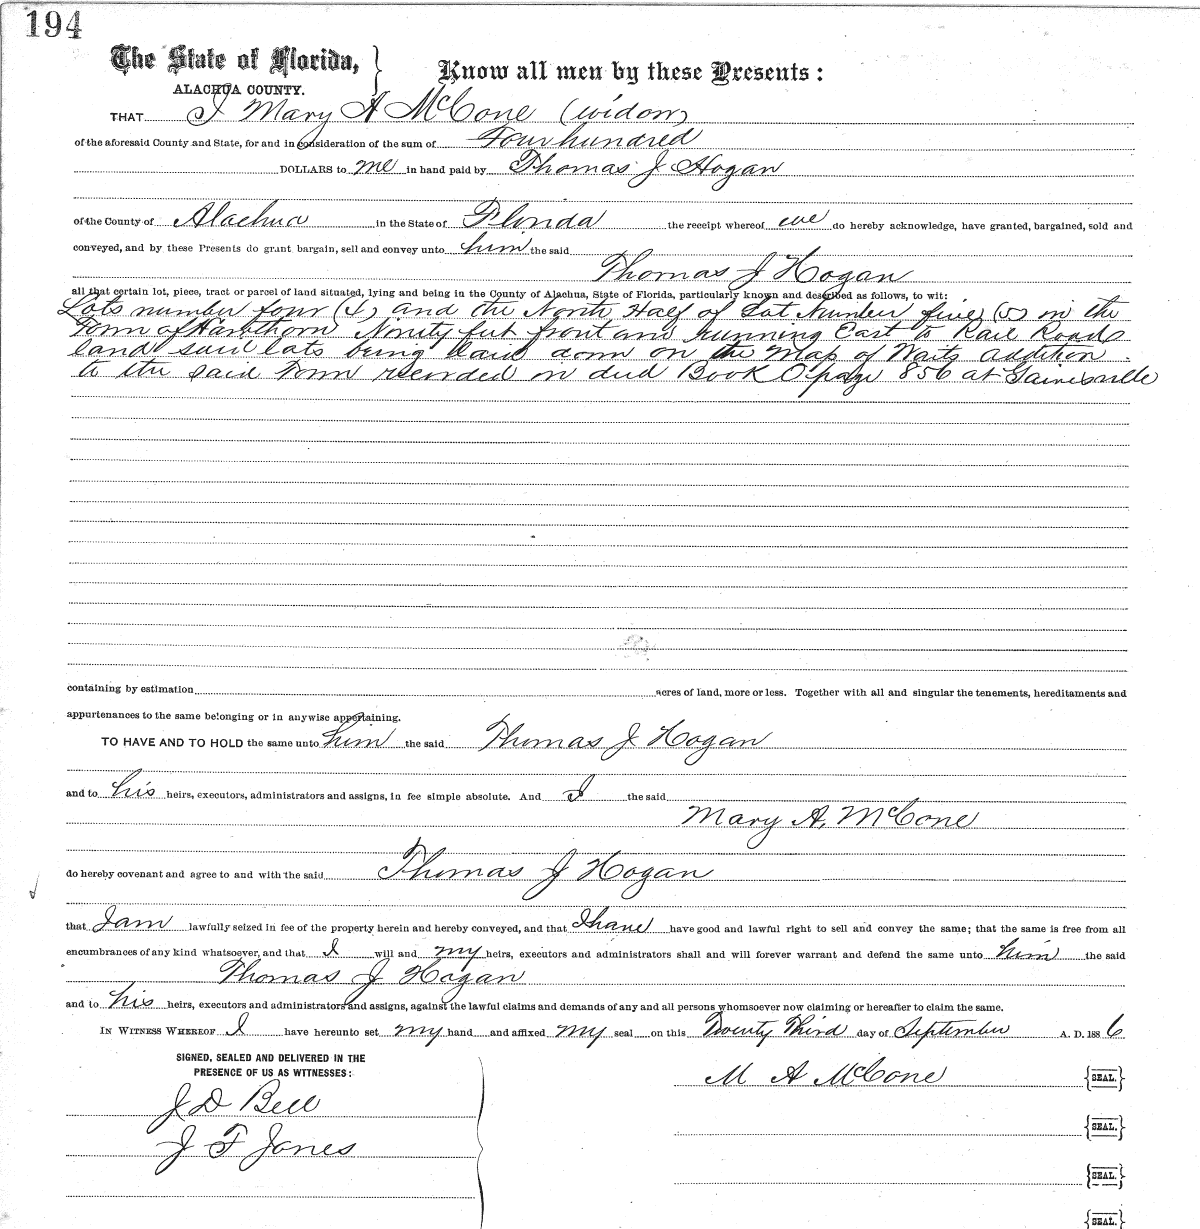 194
The State of Florida, }
ALACHUA COUNTY.
Know all men by these Presents :
THAT I Mary A McCone (widow)
of the aforesaid County and State, for and in consideration of the sum of Four hundred
DOLLARS to me in hand paid by Thomas J Hogan
of the County of Alachua in the State of Florida the receipt whereof we do hereby acknowledge, have granted, bargained, sold and
conveyed, and by these Presents do grant bargain, sell and convey unto him the said
Thomas J Hogan
all that certain lot, piece, tract or parcel of land situated, lying and being in the County of Alachua, State of Florida, particularly known and described as follows, to wit:
Lots number four (4) and the North Half of Lot Number five (5) in the
Town of Hawthorn Ninty feet front and running East to Rail Roads
land said lots being laid down on the Map of Waits addition
to the said Town recorded in deed Book O page 856 at Gainesville
containing by estimation acres of land, more or less. Together with all and singular the tenements, hereditaments and
appurtenances to the same belonging or in anywise appertaining.
TO HAVE AND TO HOLD the same unto him the said Thomas J Hogan
and to his heirs, executors, administrators and assigns, in fee simple absolute. And I the said
Mary A. McCone
do hereby covenant and agree to and with the said Thomas J Hogan
that I am lawfully seized in fee of the property herein and hereby conveyed, and that I have have good and lawful right to sell and convey the same; that the same is free from all
encumbrances of any kind whatsoever, and that I will and my heirs, executors and administrators shall and will forever warrant and defend the same unto him the said
Thomas J Hogan
and to his heirs, executors and administrators and assigns, against the lawful claims and demands of any and all persons whomsoever now claiming or hereafter to claim the same.
IN WITNESS WHEREOF I have hereunto set my hand and affixed my seal on this Twenty Third day of September A. D. 1886
SIGNED, SEALED AND DELIVERED IN THE
PRESENCE OF US AS WITNESSES:
M A McCone {SEAL.}
J D Bell
{SEAL.}
J F Jones
{SEAL.}
{SEAL.}